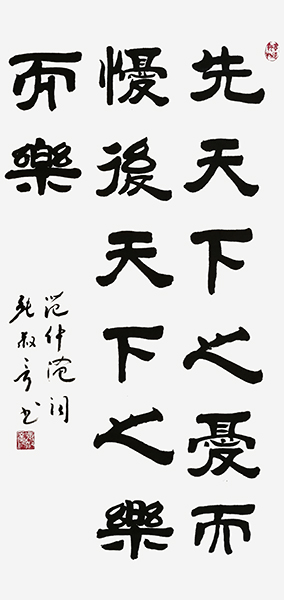 先天下之憂而
懮後天下之樂
而樂
范仲淹词
張叔言书